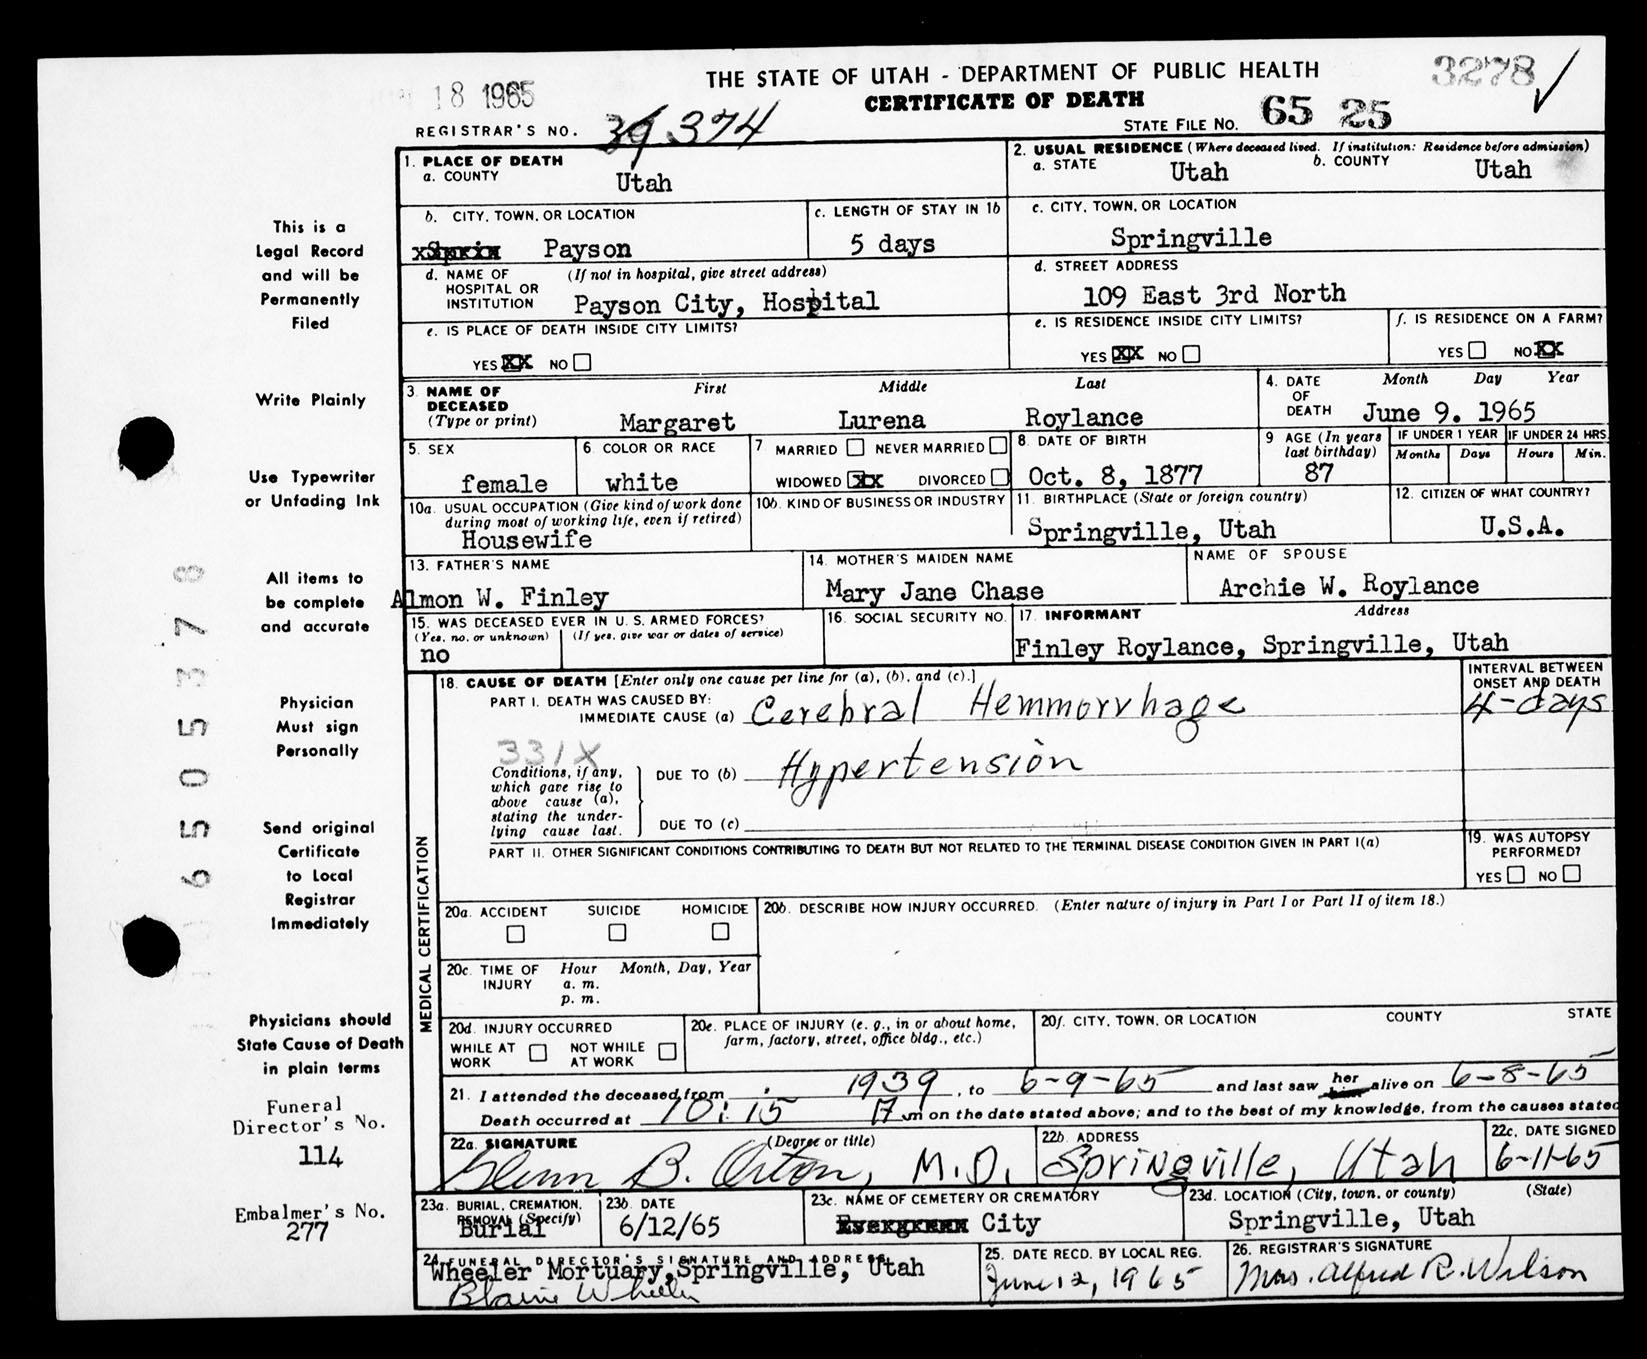 18 1965
THE STATE OF UTAH - DEPARTMENT OF PUBLIC HEALTH
3278 ✓
CERTIFICATE OF DEATH
REGISTRAR'S NO. 374
STATE FILE NO. 65 25
1. PLACE OF DEATH
a. COUNTY Utah
2. USUAL RESIDENCE (Where deceased lived. If institution: Residence before admission)
a. STATE Utah b. COUNTY Utah
b. CITY, TOWN, OR LOCATION Payson
c. LENGTH OF STAY IN 1b 5 days
c. CITY, TOWN, OR LOCATION Springville
d. NAME OF HOSPITAL OR INSTITUTION (If not in hospital, give street address) Payson City, Hospital
d. STREET ADDRESS 109 East 3rd North
e. IS PLACE OF DEATH INSIDE CITY LIMITS?
YES XX NO
e. IS RESIDENCE INSIDE CITY LIMITS?
YES XX NO
f. IS RESIDENCE ON A FARM?
YES NO XX
3. NAME OF DECEASED (Type or print)
First Middle Last
Margaret Lurena Roylance
4. DATE OF DEATH Month Day Year
June 9. 1965
5. SEX female
6. COLOR OR RACE white
7. MARRIED NEVER MARRIED
WIDOWED XX DIVORCED
8. DATE OF BIRTH Oct. 8, 1877
9 AGE (In years last birthday) 87
IF UNDER 1 YEAR Months Days
IF UNDER 24 HRS. Hours Min.
10a. USUAL OCCUPATION (Give kind of work done during most of working life, even if retired)
Housewife
10b. KIND OF BUSINESS OR INDUSTRY
11. BIRTHPLACE (State or foreign country)
Springville, Utah
12. CITIZEN OF WHAT COUNTRY?
U.S.A.
13. FATHER'S NAME
Almon W. Finley
14. MOTHER'S MAIDEN NAME
Mary Jane Chase
NAME OF SPOUSE
Archie W. Roylance
15. WAS DECEASED EVER IN U. S. ARMED FORCES?
(Yes, no, or unknown) (If yes, give war or dates of service)
no
16. SOCIAL SECURITY NO.
17. INFORMANT Address
Finley Roylance, Springville, Utah
MEDICAL CERTIFICATION
18. CAUSE OF DEATH [Enter only one cause per line for (a), (b), and (c).]
INTERVAL BETWEEN ONSET AND DEATH
PART I. DEATH WAS CAUSED BY:
IMMEDIATE CAUSE (a) Cerebral Hemmorrhage
4-days
331X
Conditions, if any, which gave rise to above cause (a), stating the underlying cause last.
DUE TO (b) Hypertension
DUE TO (c)
PART II. OTHER SIGNIFICANT CONDITIONS CONTRIBUTING TO DEATH BUT NOT RELATED TO THE TERMINAL DISEASE CONDITION GIVEN IN PART I(a)
19. WAS AUTOPSY PERFORMED?
YES NO
20a. ACCIDENT SUICIDE HOMICIDE
20b. DESCRIBE HOW INJURY OCCURRED. (Enter nature of injury in Part I or Part II of item 18.)
20c. TIME OF INJURY Hour Month, Day, Year
a. m.
p. m.
20d. INJURY OCCURRED
WHILE AT WORK NOT WHILE AT WORK
20e. PLACE OF INJURY (e. g., in or about home, farm, factory, street, office bldg., etc.)
20f. CITY, TOWN, OR LOCATION COUNTY STATE
21. I attended the deceased from 1939, to 6-9-65 and last saw her alive on 6-8-65
Death occurred at 10:15 m on the date stated above; and to the best of my knowledge, from the causes stated
22a. SIGNATURE (Degree or title)
Glenn B. Orton, M.D.
22b. ADDRESS
Springville, Utah
22c. DATE SIGNED
6-11-65
23a. BURIAL, CREMATION, REMOVAL (Specify)
Burial
23b. DATE
6/12/65
23c. NAME OF CEMETERY OR CREMATORY
City
23d. LOCATION (City, town, or county) (State)
Springville, Utah
24. FUNERAL DIRECTOR'S SIGNATURE AND ADDRESS
Wheeler Mortuary, Springville, Utah
Blaine Wheeler
25. DATE RECD. BY LOCAL REG.
June 12, 1965
26. REGISTRAR'S SIGNATURE
Mrs. Alfred R. Wilson
This is a
Legal Record
and will be
Permanently
Filed
Write Plainly
Use Typewriter
or Unfading Ink
All items to
be complete
and accurate
Physician
Must sign
Personally
Send original
Certificate
to Local
Registrar
Immediately
Physicians should
State Cause of Death
in plain terms
Funeral
Director's No.
114
Embalmer's No.
277
65053278